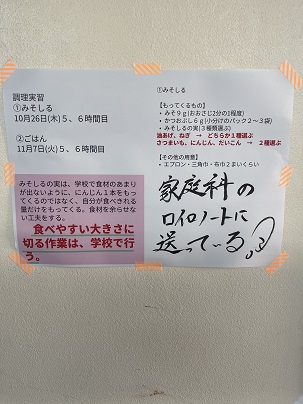 調理実習
①みそしる
10月26日(木)5、6時間目
②ごはん
11月7日(火)5、6時間目
みそしるの実は、学校で食材のあまり
が出ないように、にんじん1本をもっ
てくるのではなく、自分が食べきれる
量だけをもってくる。食材を余らせな
い工夫をする。
食べやすい大きさに
切る作業は、学校で行
う。
①みそしる
【もってくるもの】
・みそ9g(おおさじ2分の1程度)
・かつおぶし6g(小分けのパック2～3袋)
・みそしるの実(3種類選ぶ)
油あげ、ねぎ → どちらか1種選ぶ
さつまいも、にんじん、だいこん → 2種選ぶ
【その他の用意】
・エプロン・三角巾・布巾2まいくらい
家庭科の
ロイロノートに
送っている。